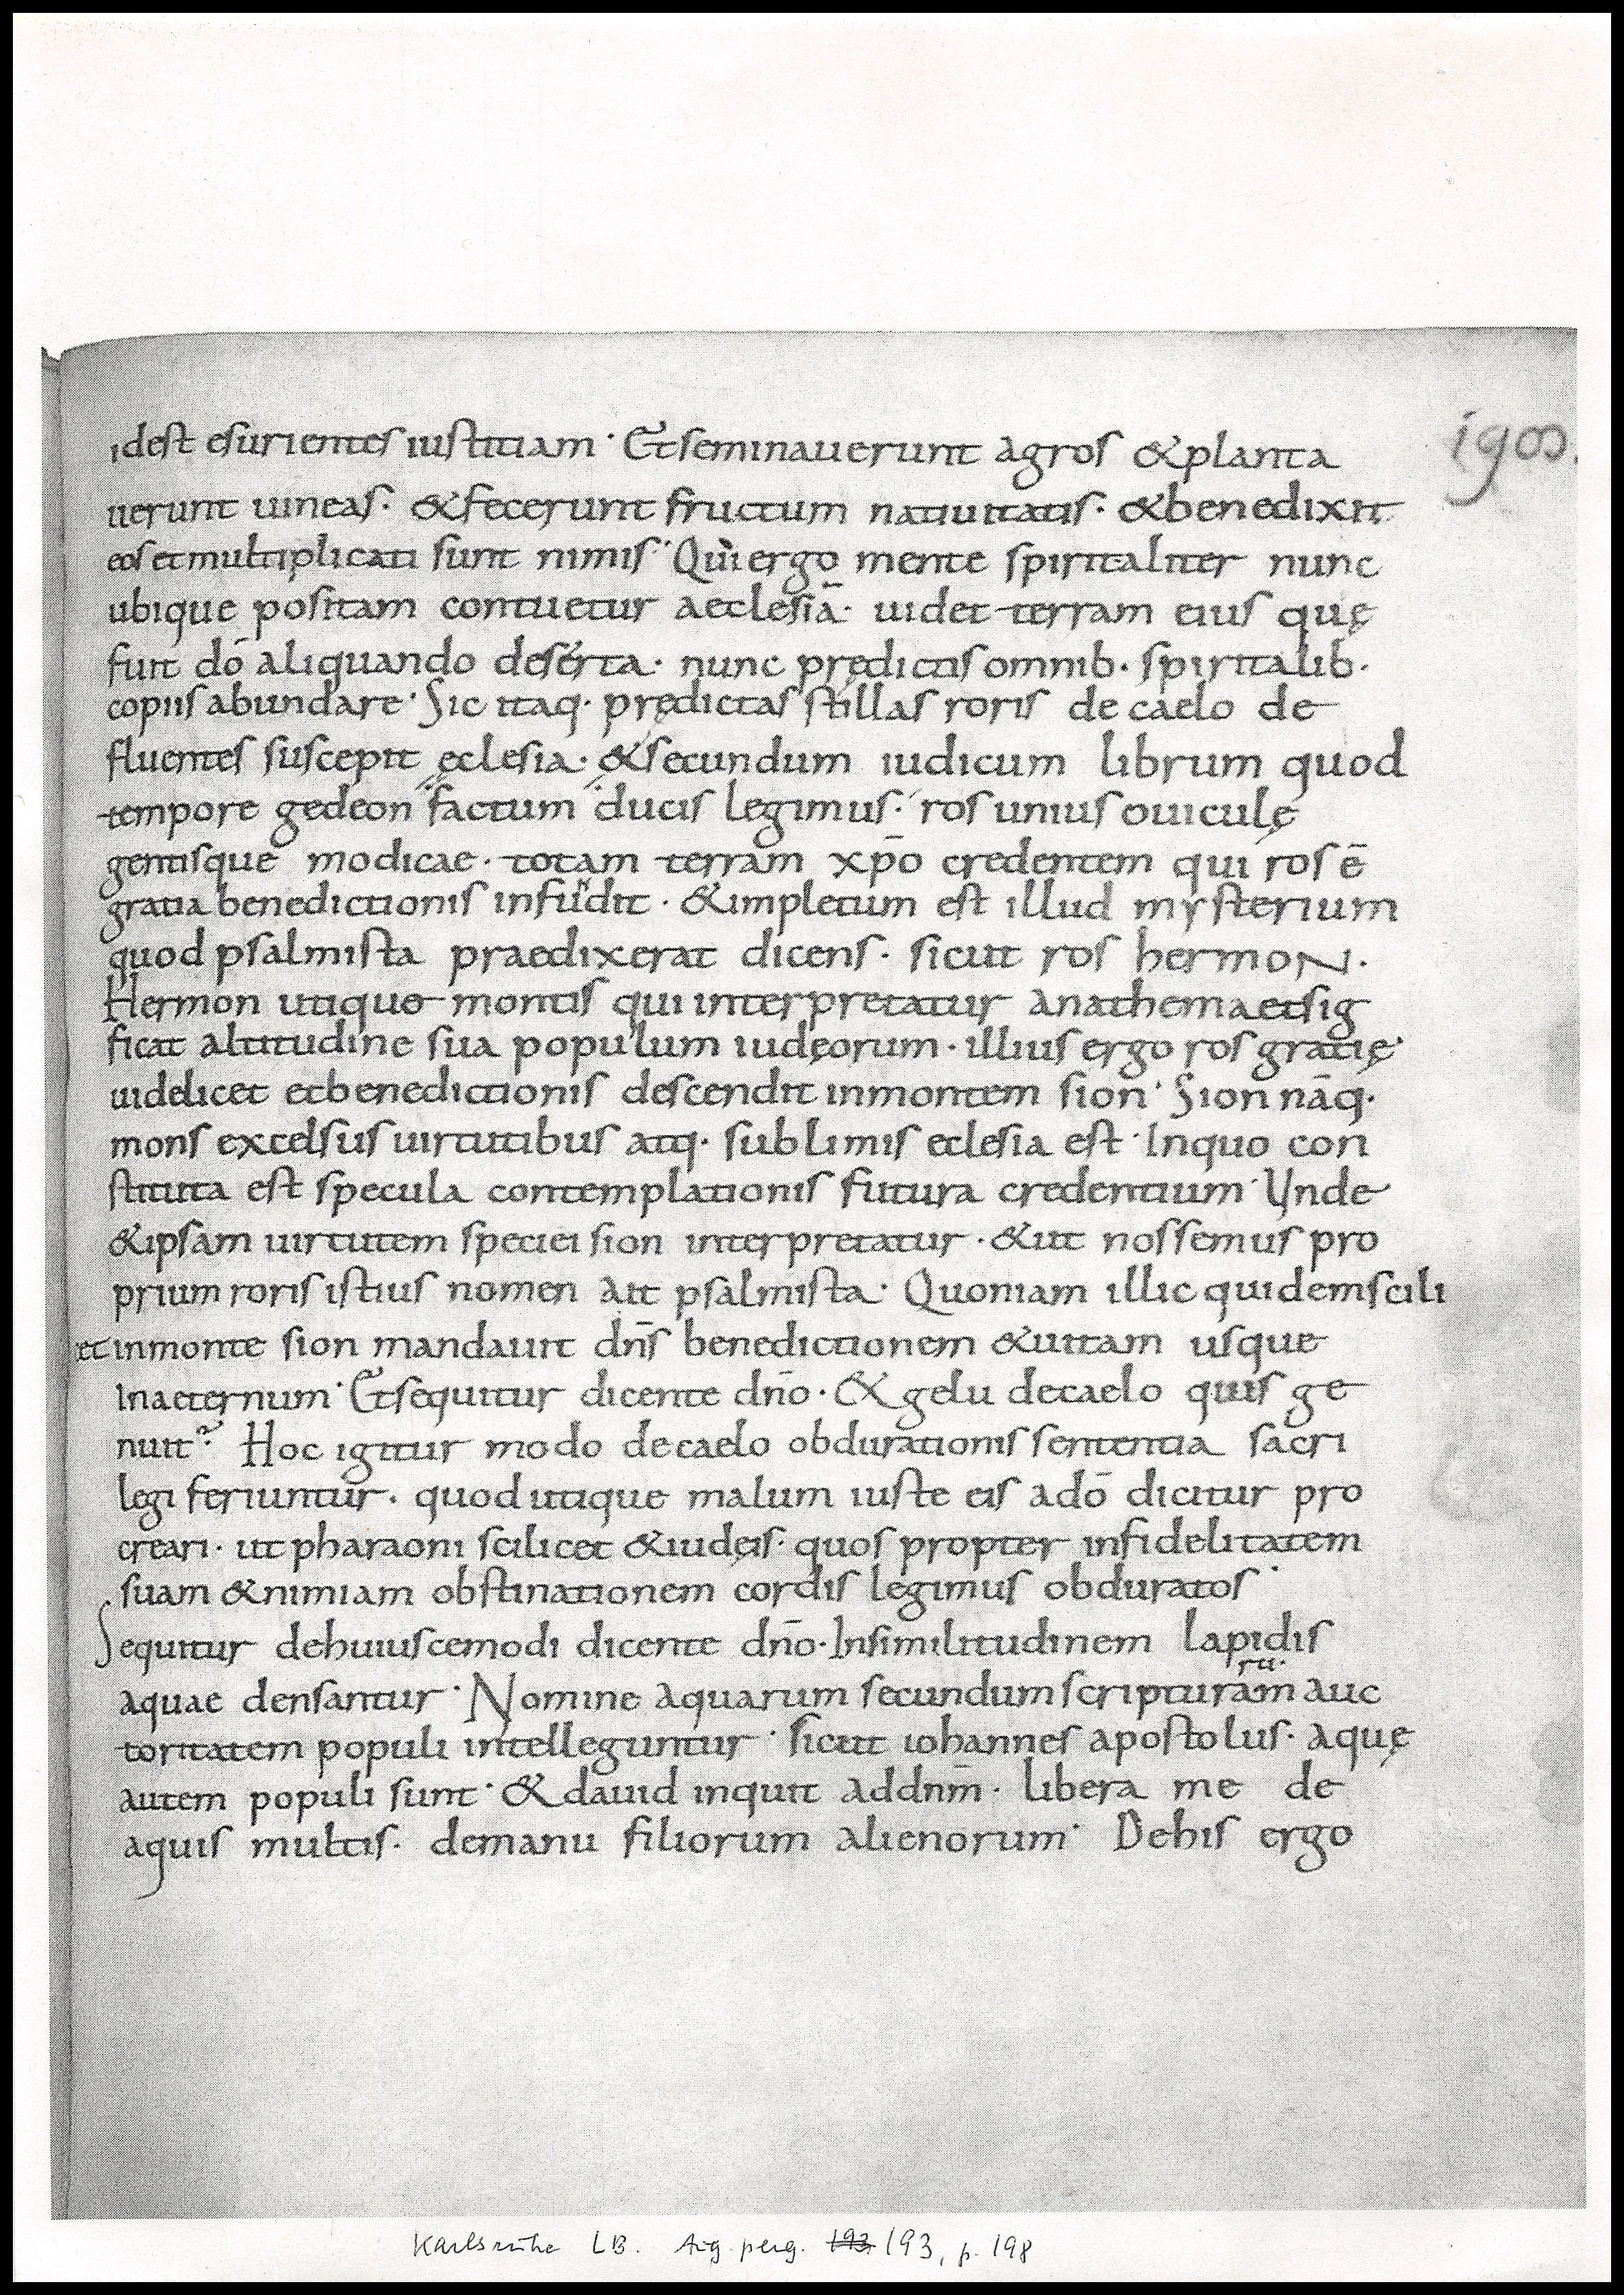 idest esurientes iustitiam · Et seminauerunt agros & planta
uerunt uineas · & fecerunt fructum natiuitatis · & benedixit
eos et multiplicati sunt nimis · Qui ergo mente spiritaliter nunc
ubique positam contuetur aeclesiā · uidet terram eius quę
fuit dō aliquando deserta · nunc prędictis omnib· spiritalib·
copiis abundare · Sic itaq· prędictas stillas roris de caelo de
fluentes suscepit eclesia · & secundum iudicum librum quod
tempore gedeon factum ducis legimus · ros unius ouiculę
gentisque modicae · totam terram xp̄o credentem qui ros ē
gratia benedictionis infudit · & impletum est illud mysterium
quod psalmista praedixerat dicens · sicut ros hermoN ·
Hermon utique montis qui interpretatur anathema et sig
ficat altitudine sua populum iudęorum · illius ergo ros gratię
uidelicet et benedictionis descendit in montem sion · Sion nāq·
mons excelsus uirtutibus atq· sublimis eclesia est · In quo con
stituta est specula contemplationis futura credentium · Unde
& ipsam uirtutem speciei sion interpretatur · & ut nossemus pro
prium roris istius nomen ait psalmista · Quoniam illic quidem scili
et in monte sion mandauit dn̄s benedictionem & uitam usque
in aeternum · Et sequitur dicente dn̄o · & gelu de caelo quis ge
nuit? Hoc igitur modo de caelo obdurationis sententia sacri
legi feriuntur · quod utique malum iuste eis a dō dicitur pro
creari · ut pharaoni scilicet & iudęis · quos propter infidelitatem
suam & nimiam obstinationem cordis legimus obduratos ·
Sequitur de huiuscemodi dicente dn̄o · In similitudinem lapidis
rū·
aquae densantur · Nomine aquarum secundum scripturam auc
toritatem populi intelleguntur · sicut iohannes apostolus · aquę
autem populi sunt · & dauid inquit ad dnm̄ · libera me de
aquis multis · de manu filiorum alienorum · De his ergo
Karlsruhe LB. Aug. perg. 193 193, p. 198